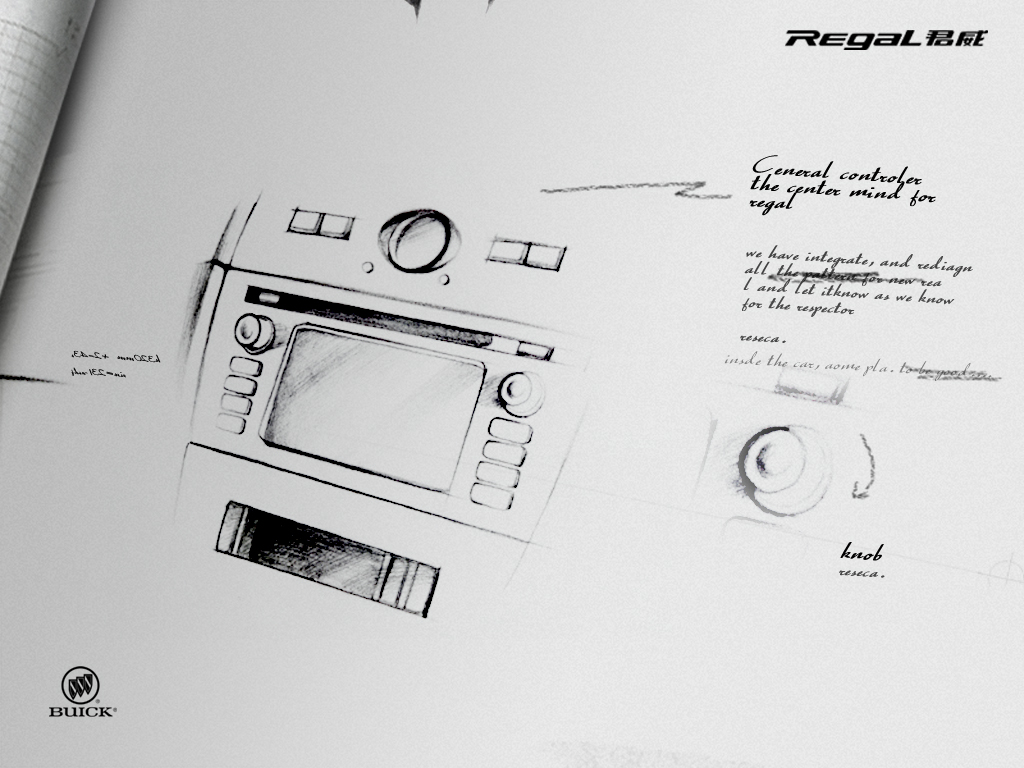 RegaL 君威
Ceneral controler
the center mind for
regal
we have integrate, and rediagn
all the pattern for new rea
l and let itknow as we know
for the respector
reseca.
insde the car, aome pla. to be good
knob
reseca.
BUICK